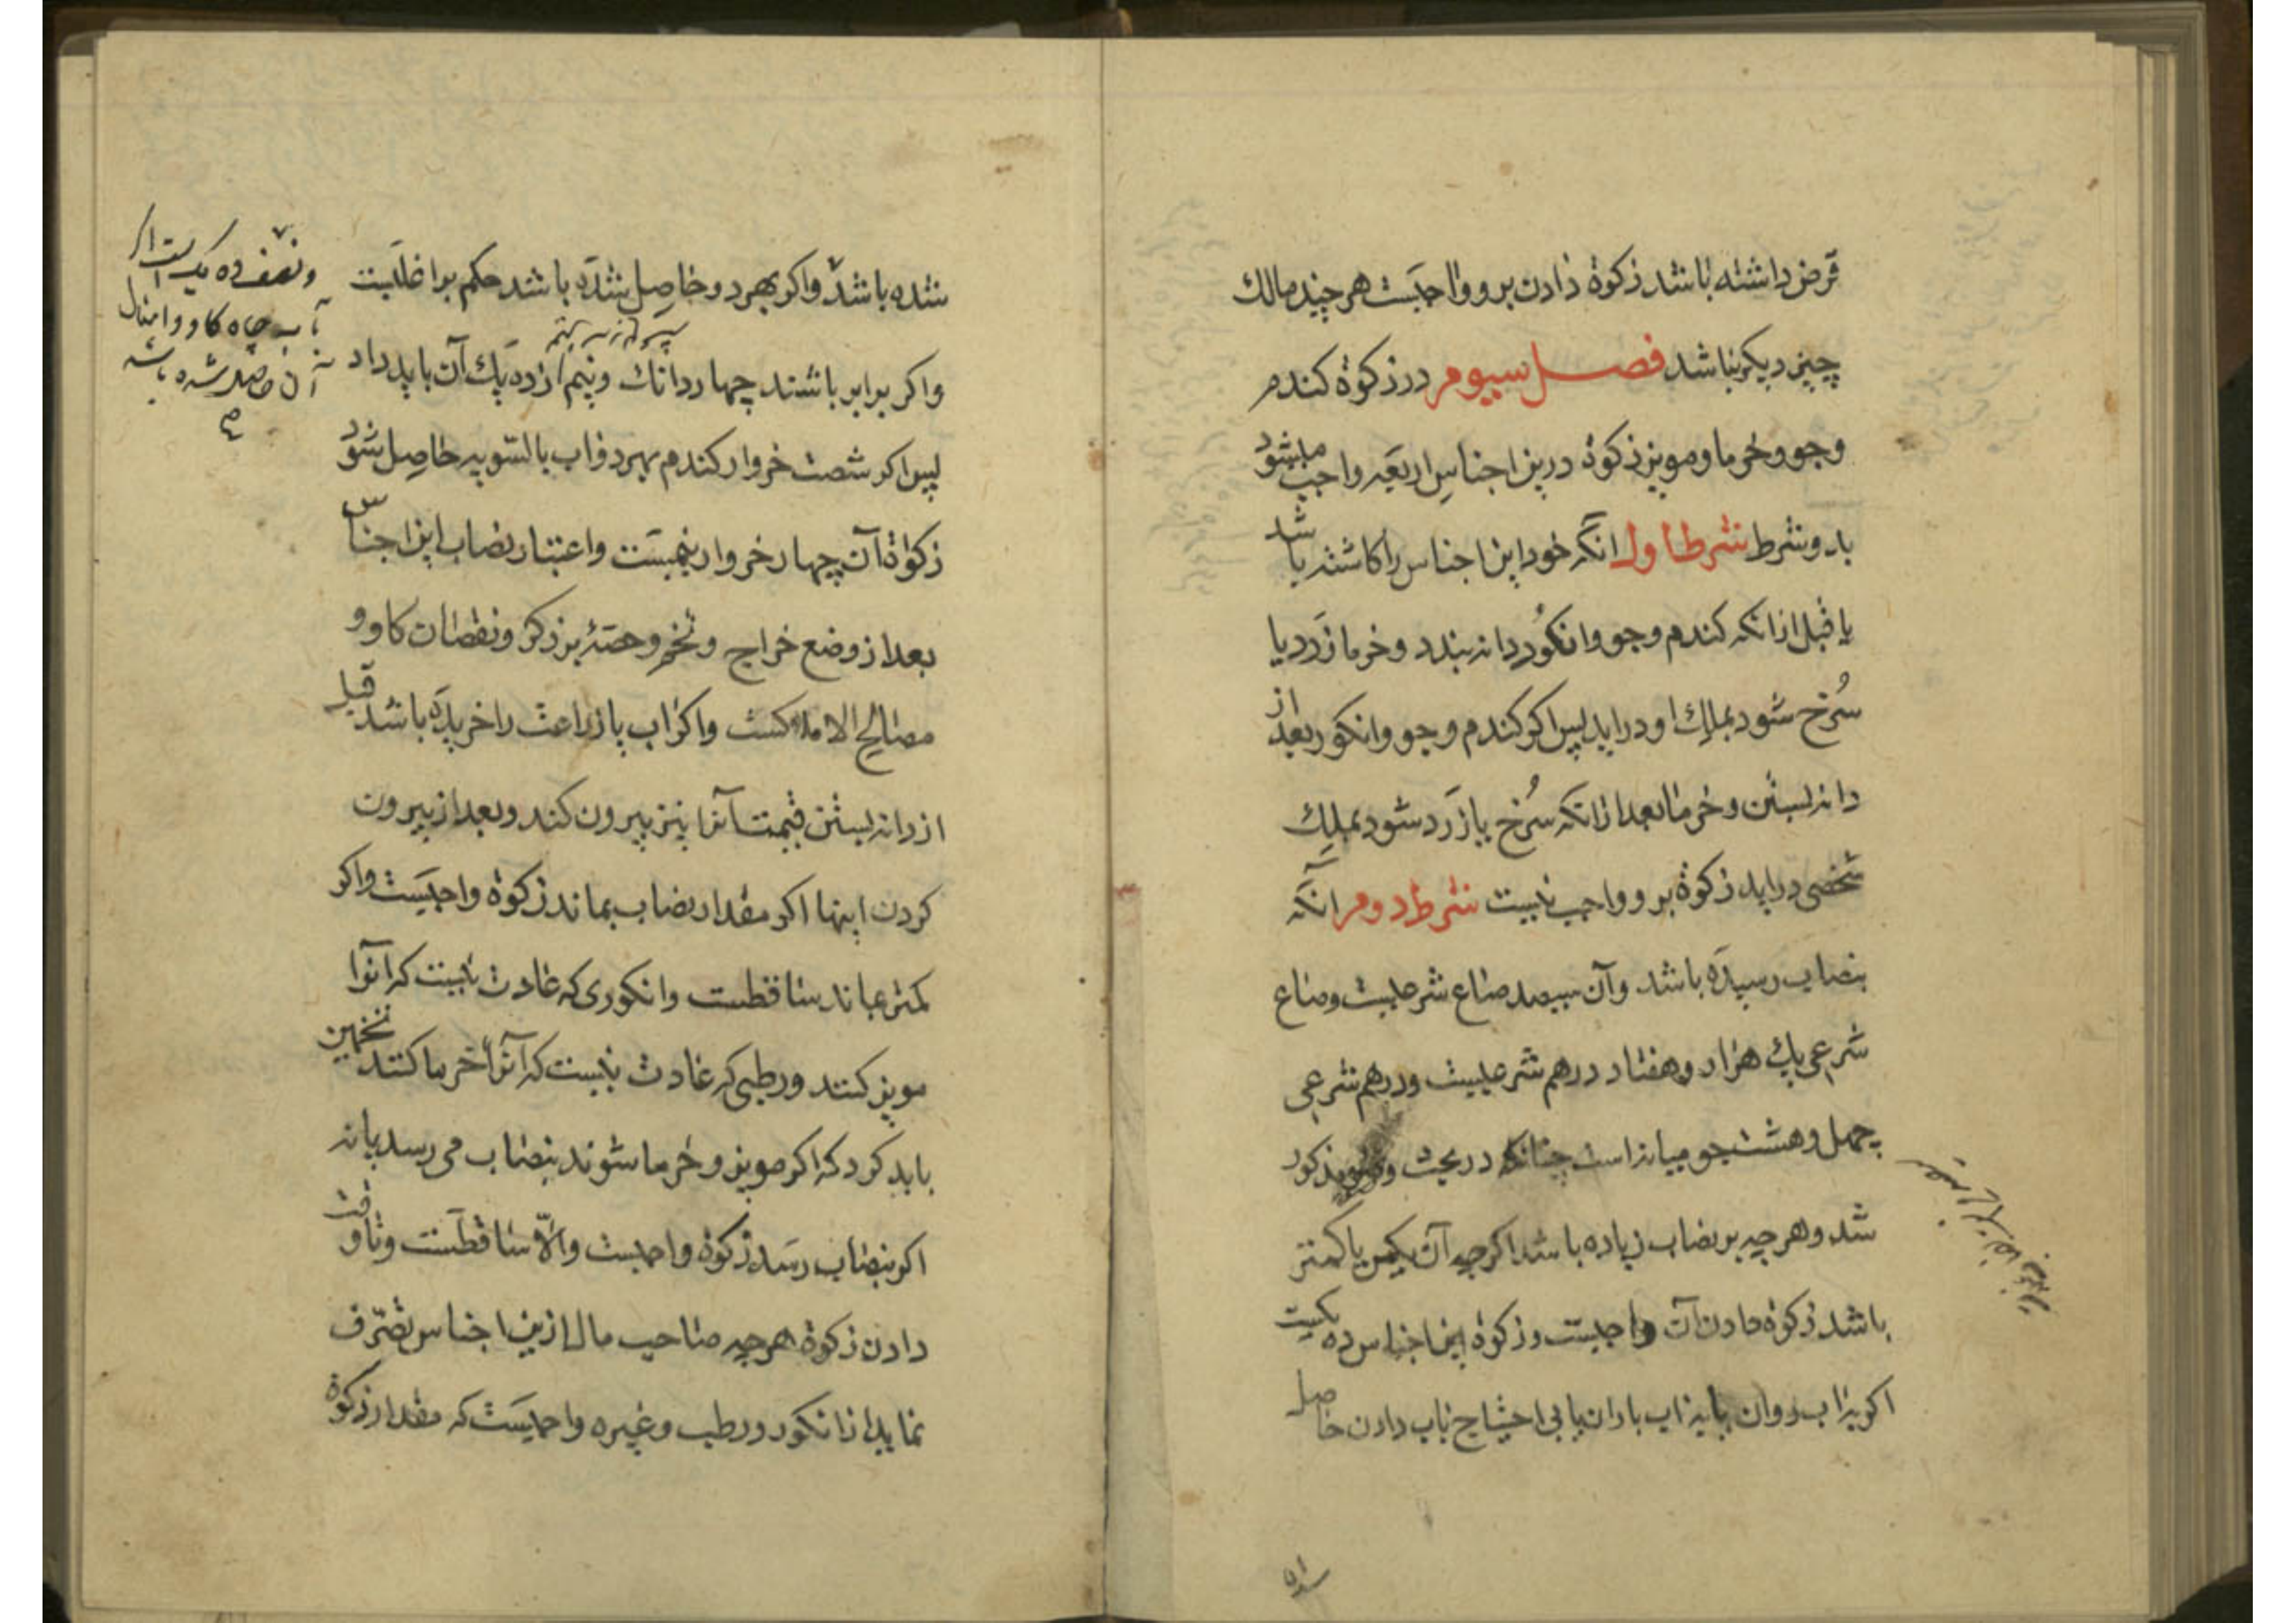 قرض داشته باشد زكوة دادن برو واجبست هر چند مالك
چيز ديكر نباشد فصل سيوم در زكوة كندم
و جو و خرما و مويز زكوة درين اجناس اربعه واجب ميشود
بدو شرط شرط اول انكه خود اين اجناس را كاشته باشد
يا قبل از انكه كندم و جو و انكور دانه بندد و خرما زرد يا
سرخ شود بملك او درايد پس اكر كندم و جو و انكور بعد از
دانه بستن و خرما بعد از انكه سرخ يا زرد شود بملك
شخصى درايد زكوة برو واجب نيست شرط دوم آنكه
بنصاب رسيده باشد و آن سيصد صاع شرعيست و صاع
شرعى يك هزار و هفتاد درهم شرعيست و درهم شرعى
چهل و هشت جو ميانه است چنانكه در بحث وضو مذكور
شد و هر چه بر نصاب زياده باشد اكر چه آن يكمن يا كمتر
باشد زكوة دادن آن واجبست و زكوة اين اجناس ده يكست
اكر به اب روان يا به اب باران يا بى احتياج باب دادن حاصل
شده باشد و اكر بهر دو حاصل شده باشد حكم بر اغلبست
و اكر برابر باشند چهار دانك و نيم از ده يك آن بايد داد
پس اكر شصت خروار كندم بهر دو اب بالسويه حاصل شود
زكواة آن چهار خروار و نيمست و اعتبار نصاب اين اجناس
بعد از وضع خراج و تخم و حصهٔ بزركر و نقصان كاو و
مصالح الاملاك است و اكر اب يا زراعت را خريده باشد قبل
از دانه بستن قيمت آنرا نيز بيرون كند و بعد از بيرون
كردن اينها اكر مقدار نصاب بماند زكوة واجبست و اكر
كمتر بماند ساقطست و انكورى كه عادت نيست كه آنرا
مويز كنند و رطبى كه عادت نيست كه آنرا خرما كنند تخمين
بايد كرد كه اكر مويز و خرما شوند بنصاب مى رسد يا نه
اكر بنصاب رسد زكوة واجبست و الّا ساقطست و تا وقت
دادن زكوة هر چه صاحب مال ازين اجناس تصرّف
نمايد از انكور و رطب و غيره واجبست كه مقدار زكوة
و نصف ده يك است اكر
بآب چاه كاو و امثال
آن حاصل شده باشد